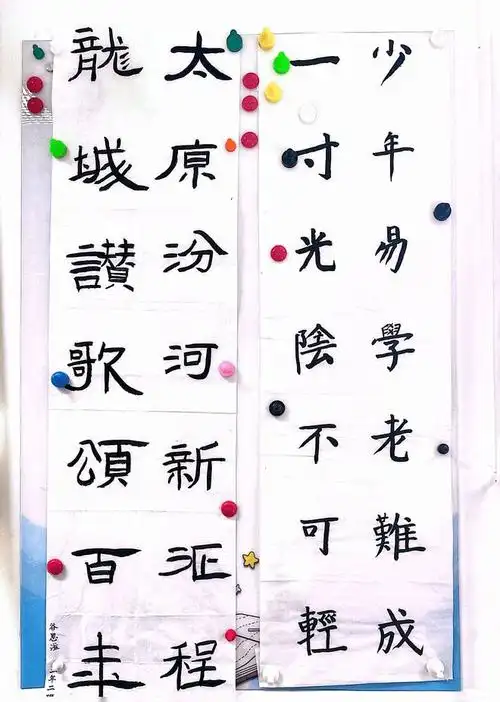 少年易學老難成
一寸光陰不可輕
太原汾河新征程
龍城讚歌頌百年